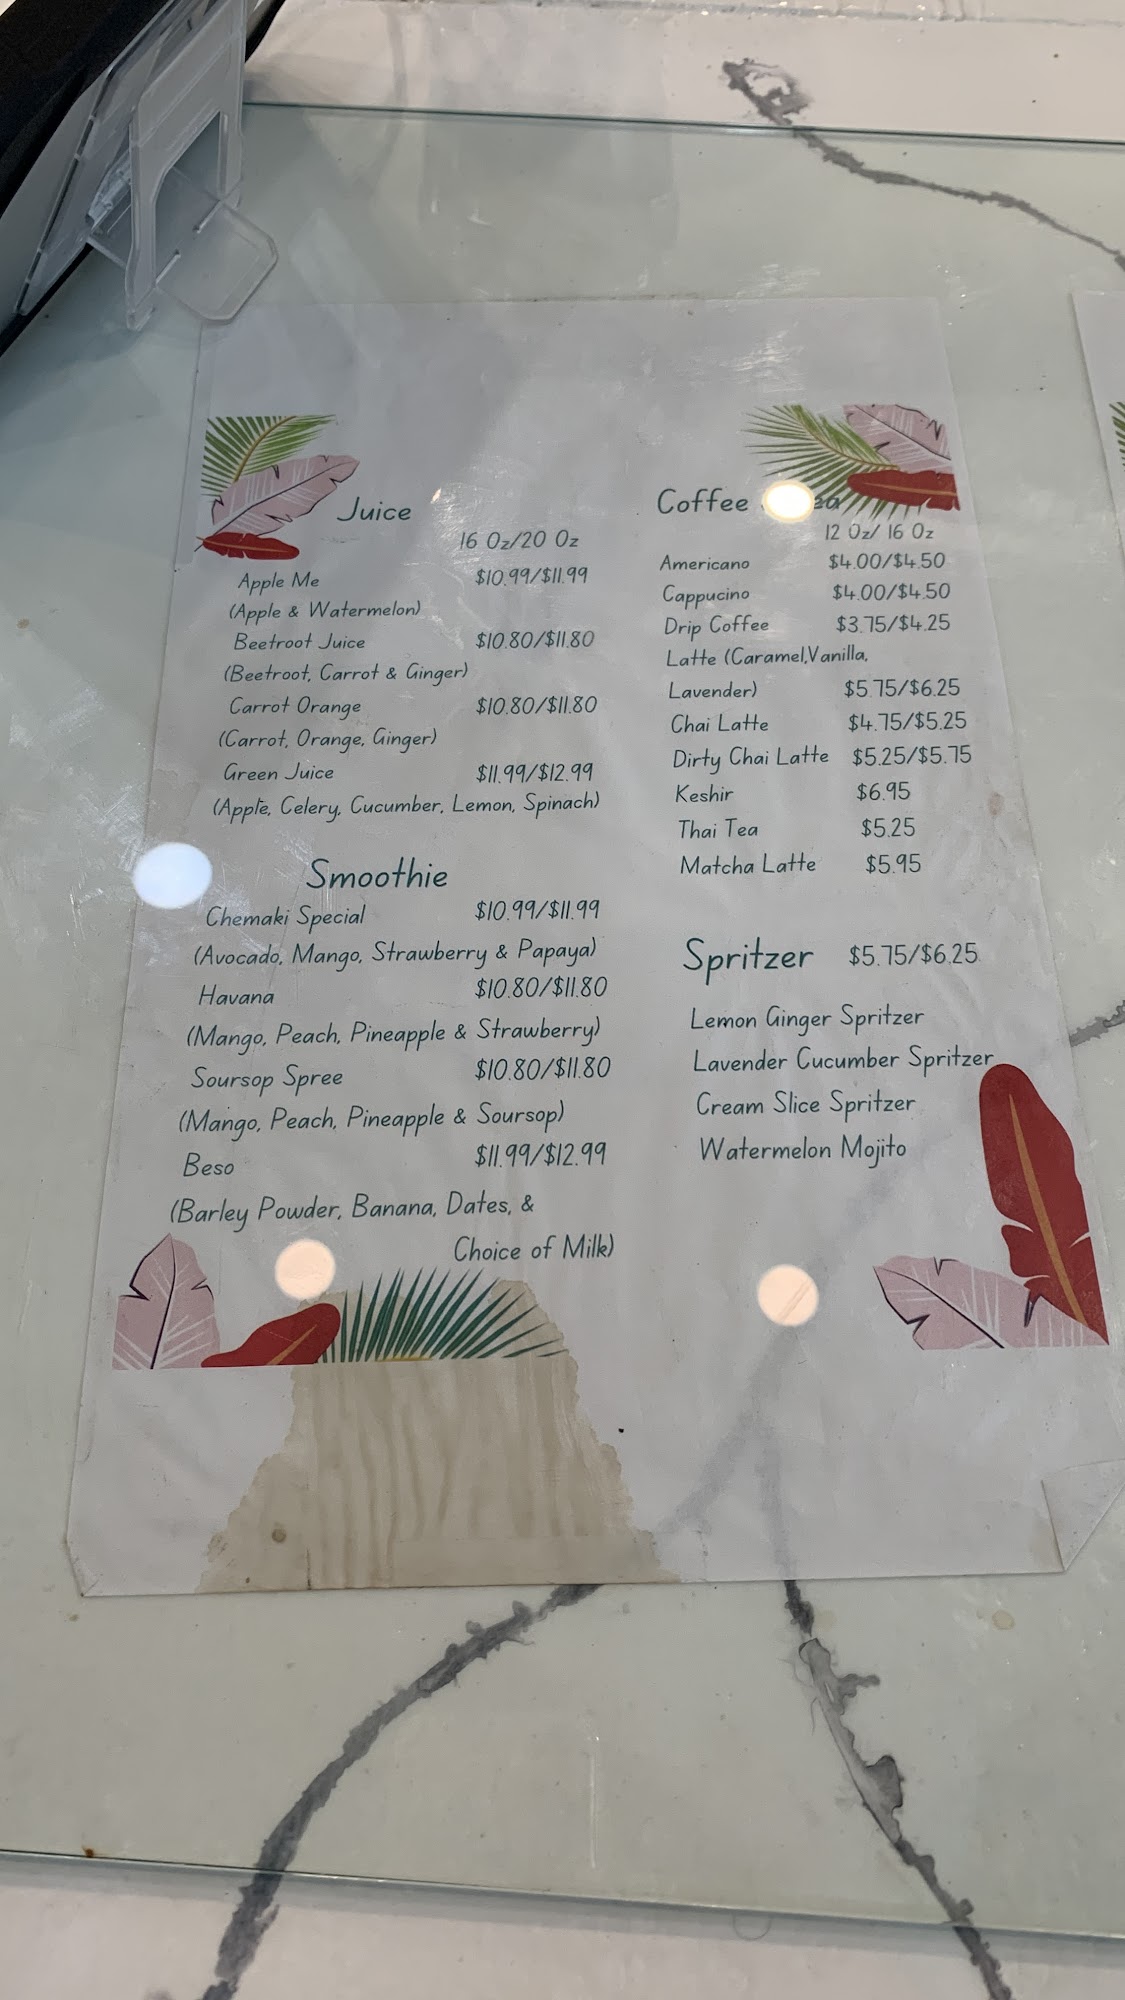 Juice
16 Oz/20 Oz
Apple Me $10.99/$11.99
(Apple & Watermelon)
Beetroot Juice $10.80/$11.80
(Beetroot, Carrot & Ginger)
Carrot Orange $10.80/$11.80
(Carrot, Orange, Ginger)
Green Juice $11.99/$12.99
(Apple, Celery, Cucumber, Lemon, Spinach)
Smoothie
Chemaki Special $10.99/$11.99
(Avocado, Mango, Strawberry & Papaya)
Havana $10.80/$11.80
(Mango, Peach, Pineapple & Strawberry)
Soursop Spree $10.80/$11.80
(Mango, Peach, Pineapple & Soursop)
Beso $11.99/$12.99
(Barley Powder, Banana, Dates, &
Choice of Milk)
Coffee
12 Oz/ 16 Oz
Americano $4.00/$4.50
Cappucino $4.00/$4.50
Drip Coffee $3.75/$4.25
Latte (Caramel,Vanilla,
Lavender) $5.75/$6.25
Chai Latte $4.75/$5.25
Dirty Chai Latte $5.25/$5.75
Keshir $6.95
Thai Tea $5.25
Matcha Latte $5.95
Spritzer $5.75/$6.25
Lemon Ginger Spritzer
Lavender Cucumber Spritzer
Cream Slice Spritzer
Watermelon Mojito